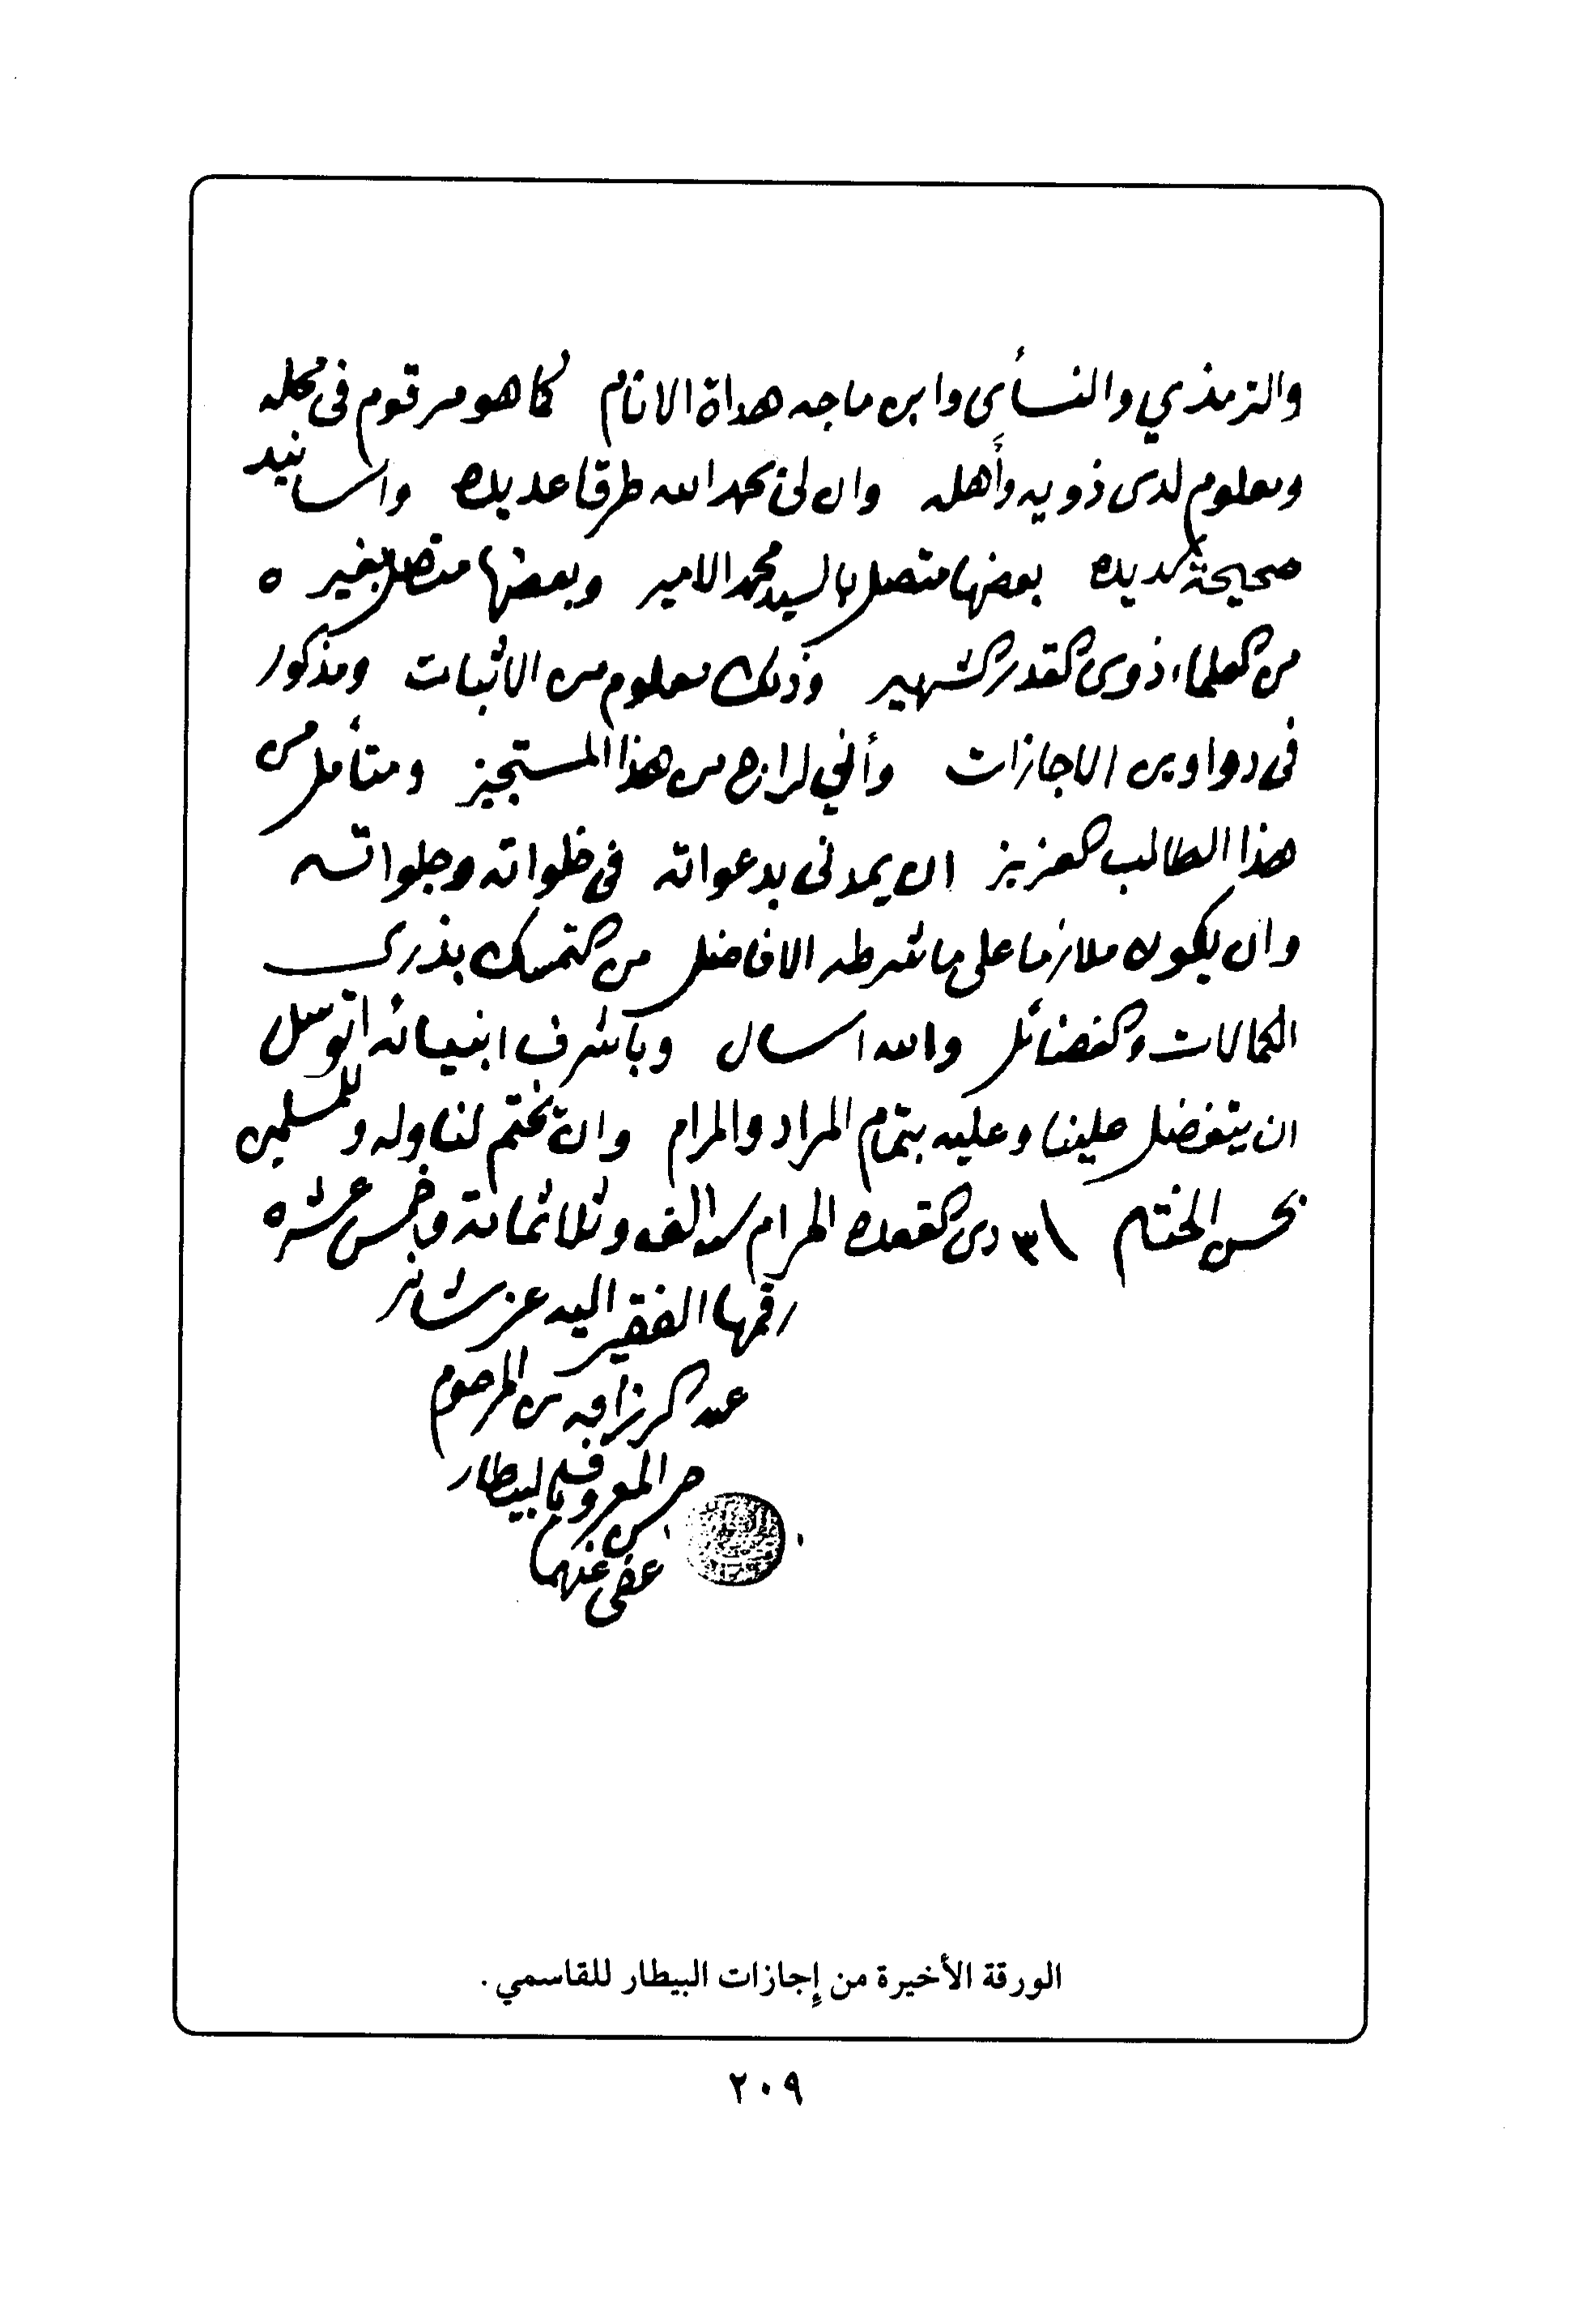 والترمذي والنسأى وابن ماجه هداة الانام كما هو مرقوم فى محله
ومعلوم لدى ذويه وأهله وان لى بحمد الله طرقا عديده واسانيد
صحيحة سديده بعضها متصل بالسيد محمد الامير وبعضها متصل بغيره
من العلماء ذوى القدر الشهير وذلك معلوم من الاثبات ومذكور
فى دواوين الاجازات وأني لراج من هذا المستجيز ومتأمل من
هذا الطالب العزيز ان يمدنى بدعواته فى خلواته وجلواته
وان يكون ملازما على ما شرطه الافاضل من التمسك بذرى
الكمالات والفضائل والله اسال وباشرف انبيائه اتوسل
ان يتفضل علينا وعليه بتمام المراد والمرام وان يختم لنا وله وللمسلمين
بحسن الختام ذى القعده الحرام سنه الف وثلاثمائة وخمس عشره
رقمها الفقير اليه عز شانه
عبد الرزاق بن المرحوم
حسن المعروف بالبيطار
عفى عنهما
الورقة الأخيرة من إجازات البيطار للقاسمي .
٢٠٩